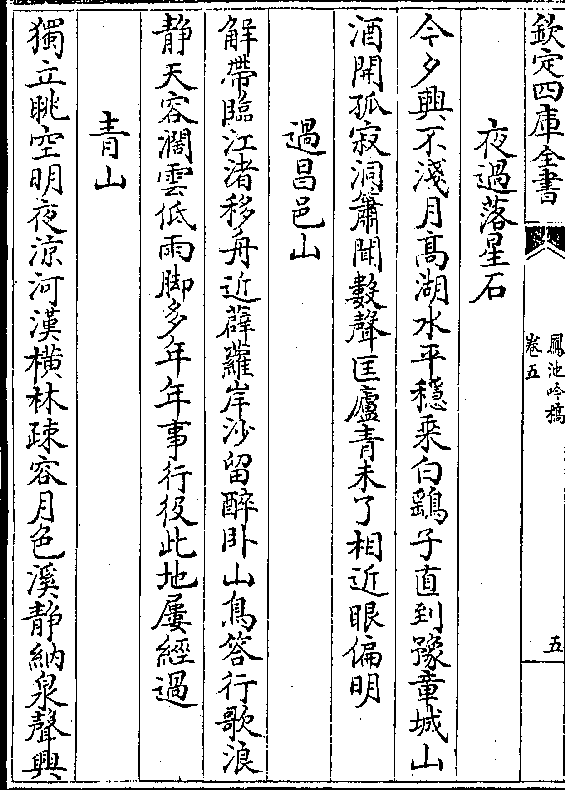 欽定四庫全書
鳳池吟稿
卷五
五
夜過落星石
今夕興不淺月髙湖水平穩乗白鷁子直到豫章城山
酒開孤寂洞簫聞數聲匡廬青未了相近眼偏明
過昌邑山
解帶臨江渚移舟近薜蘿岸沙留醉卧山鳥答行歌浪
静天容濶雲低雨脚多年年事行役此地屢經過
青山
獨立眺空明夜涼河漢橫林疎容月色溪静納泉聲興